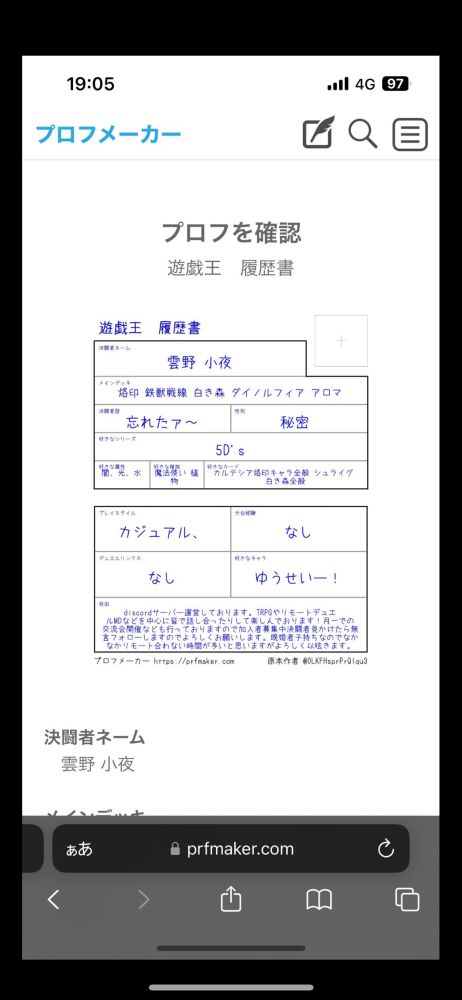 19:05
4G 97
プロフメーカー
プロフを確認
遊戯王　履歴書
遊戯王　履歴書
決闘者ネーム
雲野 小夜
メインデッキ
烙印 鉄獣戦線 白き森 ダイノルフィア アロマ
決闘者歴
忘れたァ〜
性別
秘密
好きなシリーズ
5D's
好きな属性
闇、光、水
好きな種族
魔法使い 植
物
好きなカード
カルテシア烙印キャラ全般 シュライグ
白き森全般
プレイスタイル
カジュアル、
大会経験
なし
デュエルリンクス
なし
好きなキャラ
ゆうせいー！
自由
discordサーバー運営しております。TRPGやリモートデュエ
ルMDなどを中心に皆で話し合ったりして楽しんでおります！月一での
交流会開催なども行っておりますので加入者募集中決闘者見かけたら無
言フォローしますのでよろしくお願いします。既婚者子持ちなのでなか
なかリモート合わない時間が多いと思いますがよろしく以呟きます。
プロフメーカー https://prfmaker.com
原本作者 @OLKFHsprPrQ1qu3
決闘者ネーム
雲野 小夜
メインデッキ
ぁあ
prfmaker.com